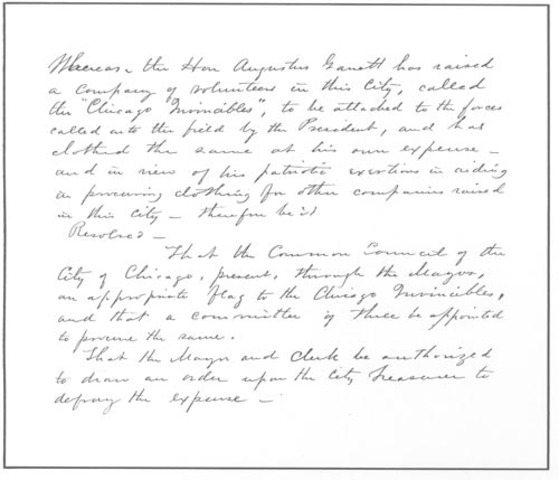 Whereas the Hon Augustus Garrett has raised
a company of volunteers in this City, called
the "Chicago Invincibles", to be attached to the forces
called into the field by the President, and has
clothed the same at his own expense –
and in view of his patriotic exertions in aiding
in procuring clothing for other companies raised
in this City – therefore be it
Resolved –
That the Common Council of the
City of Chicago, present, through the Mayor,
an appropriate flag to the Chicago Invincibles,
and that a committee of three be appointed
to procure the same.
That the Mayor and Clerk be authorized
to draw an order upon the City Treasurer to
defray the expense –